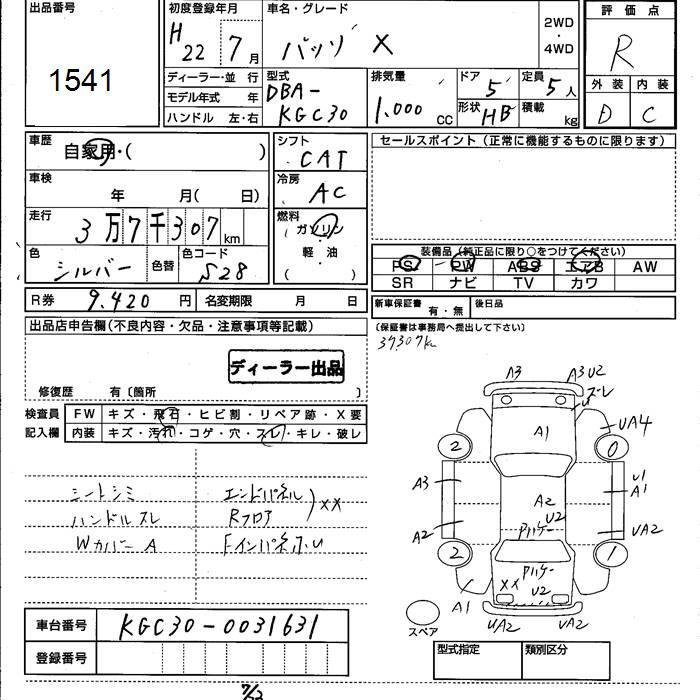 出品番号
1541
初度登録年月
H 22 7月
車名・グレード
パッソ X
2WD
・
4WD
評価点
R
外装 内装
D C
ディーラー・並行
モデル年式 年
ハンドル 左・右
型式
DBA-
KGC30
排気量
1.000 CC
ドア 5
形状 HB
定員 5人
積載 kg
車歴
自家用・( )
車検
年 月( 日)
走行
3万7千307km
色
シルバー
色替
色コード
S28
シフト
CAT
冷房
AC
燃料
ガソリン
軽油
( ・ )
セールスポイント(正常に機能するものに限ります)
装備品(純正品に限り○をつけてください)
PS PW ABS エアB AW
SR ナビ TV カワ
R券 9.420 円
名変期限 月 日
新車保証書 有・無
後日品
(保証書は事務局へ提出して下さい)
37307km
出品店申告欄(不良内容・欠品・注意事項等記載)
ディーラー出品
修復歴 有〔箇所 〕
検査員 FW キズ・飛石・ヒビ割・リペア跡・X要
記入欄 内装 キズ・汚れ・コゲ・穴・スレ・キレ・破レ
シートシミ
ハンドルスレ
Wカバー A
エンドパネル
Rフロア
XX
FインパネホU
A3
A3U2
ズレ
U
UA4
A1
2
0
A3
U1
A1
A2
U2
アパケー
A2
UA2
2
1
アパケー
XX
U2
A1
UA2
UA2
スペア
車台番号 KGC30-0031631
登録番号
型式指定
類別区分